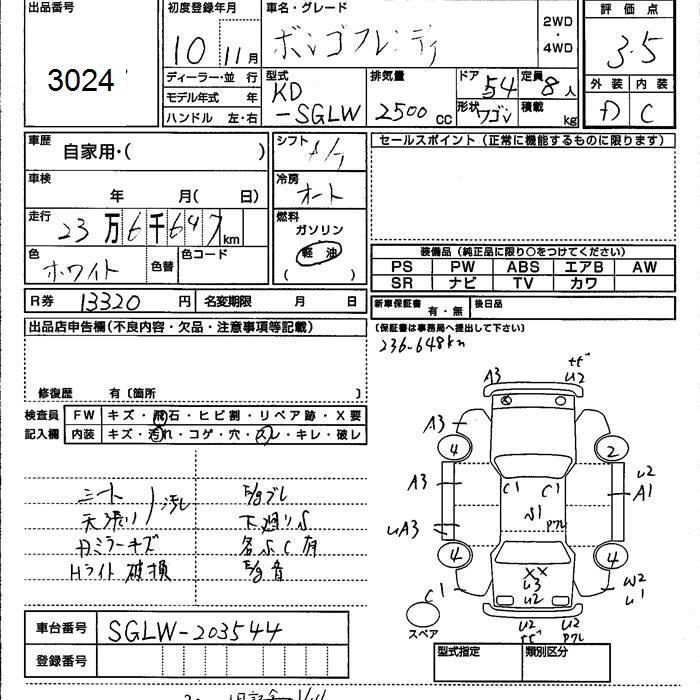 出品番号
3024
初度登録年月
10 11月
ディーラー・並 行
モデル年式 年
ハンドル 左・右
車名・グレード
ボンゴフレンディ
2WD
・
4WD
型式
KD
-SGLW
排気量
2500 cc
ドア 54
形状 ワゴン
定員 8人
積載 kg
評価点
3.5
外装 内装
D C
車歴
自家用・( )
車検
年 月( 日)
走行
23万6千647km
色
ホワイト
色替
色コード
シフト
冷房
オート
燃料
ガソリン
軽油
( )
セールスポイント(正常に機能するものに限ります)
装備品(純正品に限り○をつけてください)
PS PW ABS エアB AW
SR ナビ TV カワ
R券 13320 円 名変期限 月 日
新車保証書 有・無 後日品
(保証書は事務局へ提出して下さい)
236-648km
出品店申告欄(不良内容・欠品・注意事項等記載)
修復歴 有〔箇所 〕
検査員
記入欄
FW キズ・飛石・ヒビ割・リペア跡・X要
内装 キズ・汚れ・コゲ・穴・スレ・キレ・破レ
シート
天張り
汚れ
ミラーキズ
Hライト 破損
E/gブレ
下廻りS
各S C有
E/g音
A3
U2
A3
4
2
A3
C1
C1
S1
U2
A1
UA3
4
4
XX
U3
U2
C1
W2
U1
U2
U2
スペア
車台番号
SGLW-203544
登録番号
型式指定
類別区分